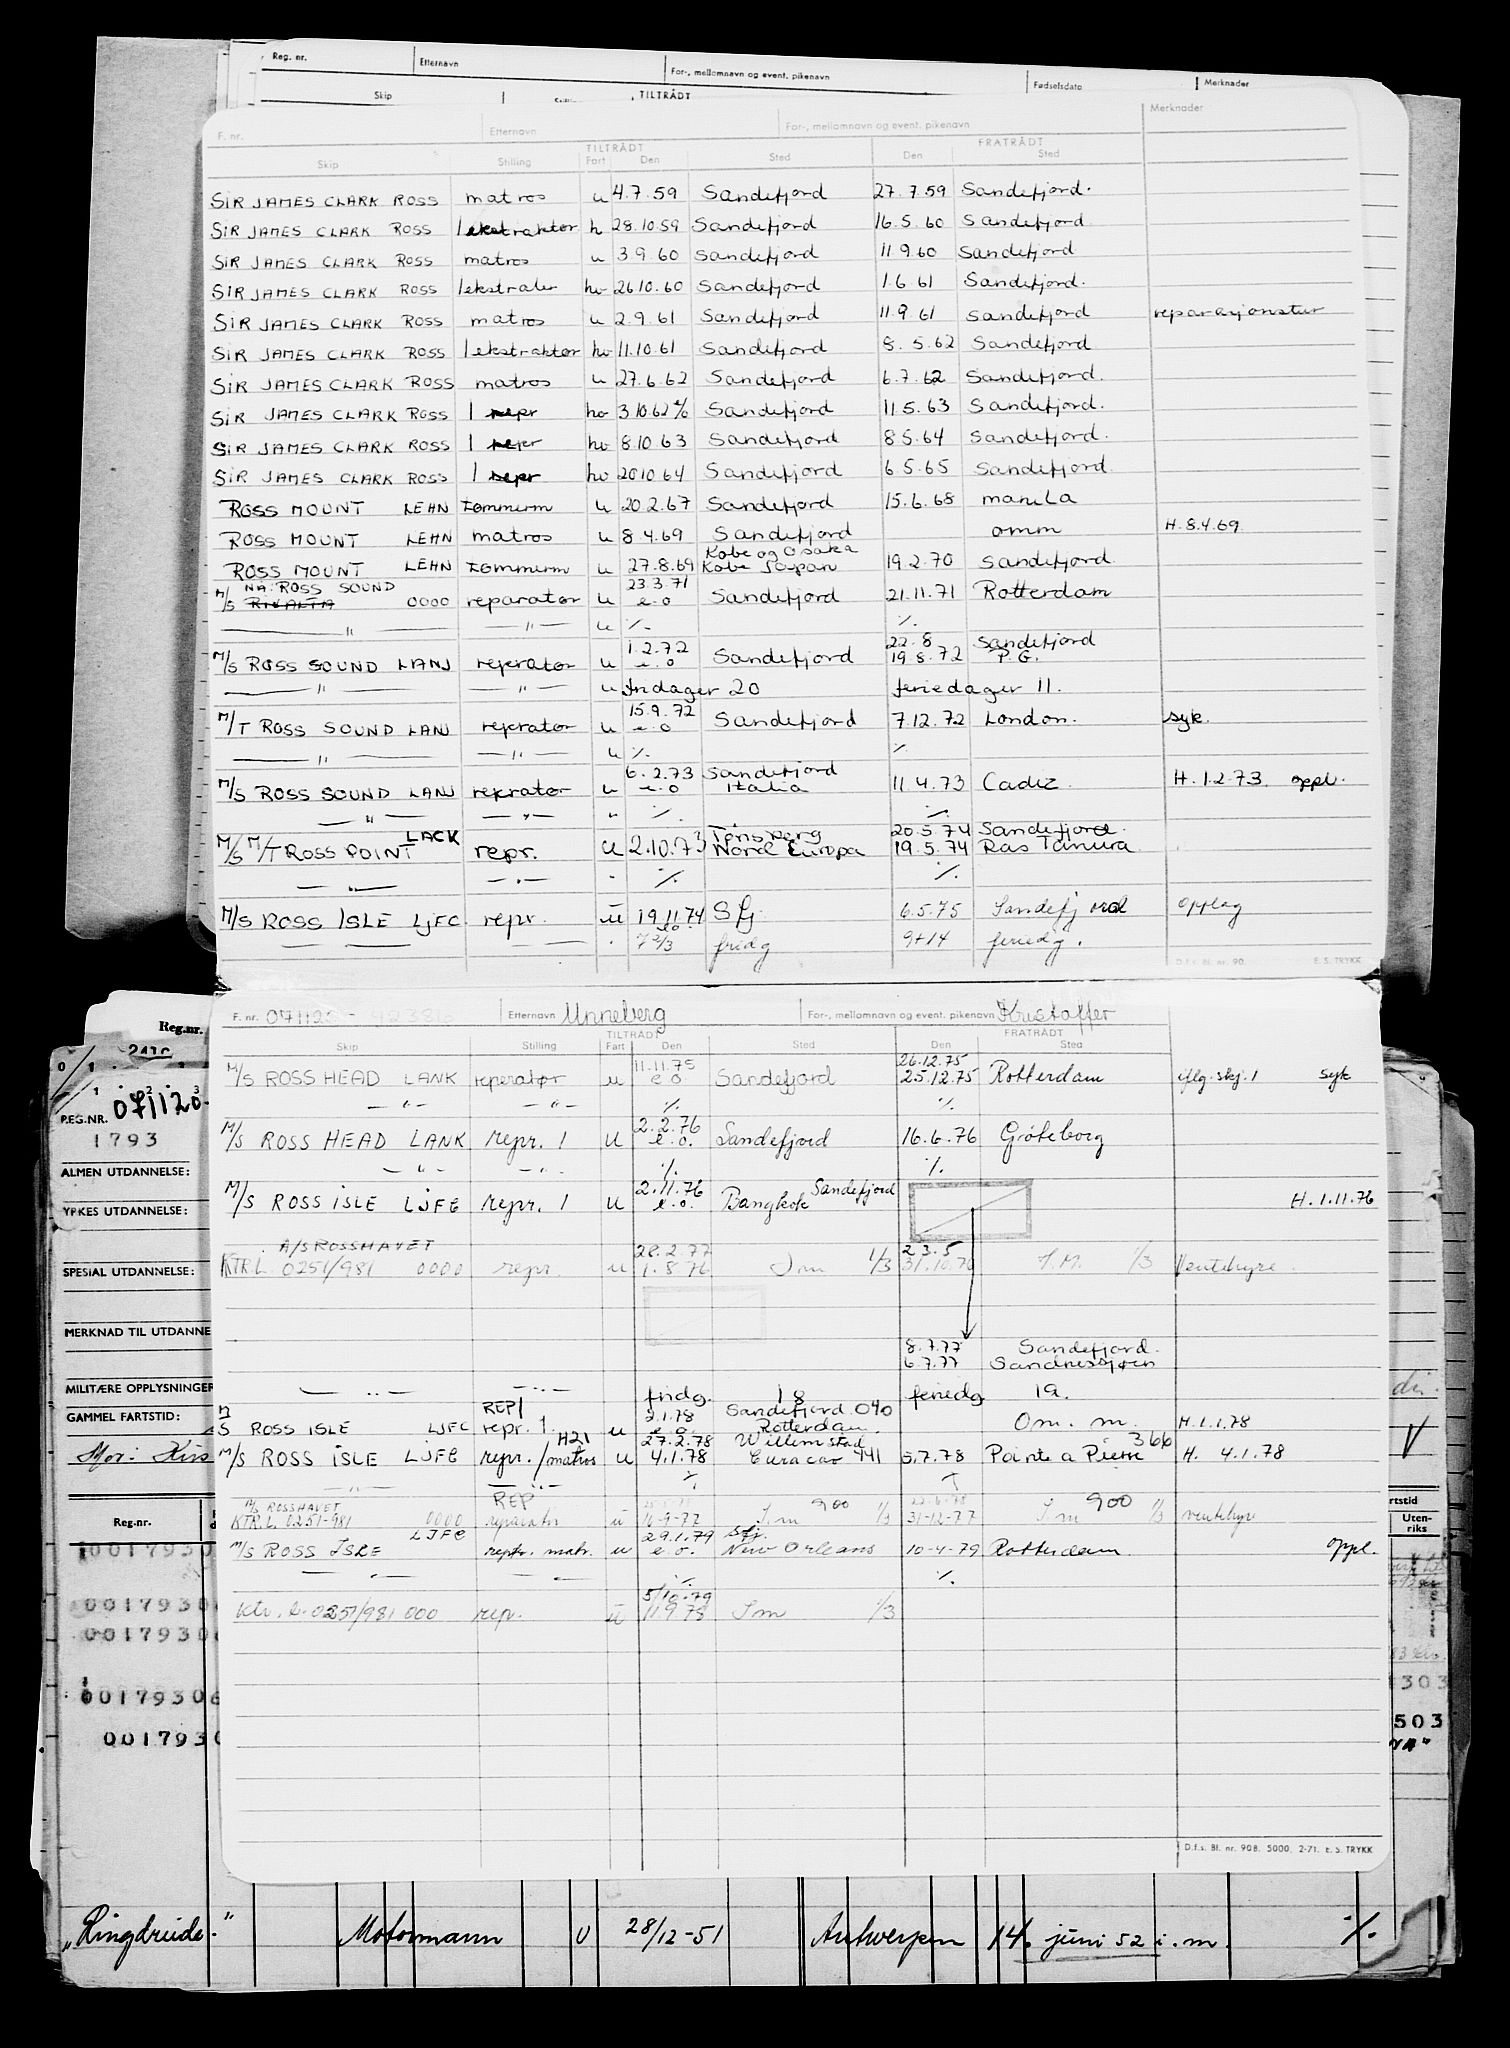 Reg. nr. Etternavn For-, mellomnavn og event. pikenavn Fødselsdato Merknader
Skip TILTRÅDT
F. nr. Etternavn For-, mellomnavn og event. pikenavn Merknader
TILTRÅDT FRATRÅDT
Skip Stilling Fart Den Sted Den Sted
SIR JAMES CLARK ROSS matros u 4.7.59 Sandefjord 27.7.59 Sandefjord.
SIR JAMES CLARK ROSS 1 ekstraktør h 28.10.59 Sandefjord 16.5.60 Sandefjord
SIR JAMES CLARK ROSS matros u 3.9.60 Sandefjord 11.9.60 Sandefjord
SIR JAMES CLARK ROSS 1ekstraktør hv 26.10.60 Sandefjord 1.6.61 Sandefjord.
SIR JAMES CLARK ROSS matros u 2.9.61 Sandefjord 11.9.61 Sandefjord reparasjonstur
SIR JAMES CLARK ROSS 1 ekstraktør hv 11.10.61 Sandefjord 8.5.62 Sandefjord
SIR JAMES CLARK ROSS matros u 27.6.62 Sandefjord 6.7.62 Sandefjord.
SIR JAMES CLARK ROSS 1 repr hv 3.10.62 Sandefjord 11.5.63 Sandefjord.
SIR JAMES CLARK ROSS 1 repr hv 8.10.63 Sandefjord 8.5.64 Sandefjord.
SIR JAMES CLARK ROSS 1 repr hv 20.10.64 Sandefjord 6.5.65 Sandefjord.
ROSS MOUNT LEHN tømmerm u 20.2.67 Sandefjord 15.6.68 manila
ROSS MOUNT LEHN matros u 8.4.69 Sandefjord omm H.8.4.69.
Kobe og Osaka
ROSS MOUNT LEHN tømmerm u 27.8.69 Kobe Japan 19.2.70 Sandefjord
NA: ROSS SOUND 23.3.71
M/S RIVALTA 0000 reparatør u e.o Sandefjord 21.11.71 Rotterdam
— " — — " — u ٪. ٪.
1.2.72 22.8 Sandefjord
M/S ROSS SOUND LANJ reperatør u e.o Sandefjord 19.8.72 P.G.
— " — — " — u fridager 20 feriedager 11.
15.9.72
M/T ROSS SOUND LANJ reperatør u e.o Sandefjord 7.12.72 London. syk.
— " — — " — u ٪. ٪.
6.2.73 Sandefjord
M/S ROSS SOUND LANJ reperatør u e.o Italia 11.4.73 Cadiz. H.1.2.73. oppl.
— " — — " — " ٪. ٪.
LACK Tønsberg 20.5.74 Sandefjord.
M/S M/T ROSS POINT repr. u 2.10.73 Nord Europa 19.5.74 Ras Tanura
— " — — " — - ٪. ٪.
M/S ROSS ISLE LJFC repr. u 19.11.74 Sfj. 6.5.75 Sandefjord opplag
e.o.
7 2/3 fridg 9+14 feriedg.
D.f.s. Bl. nr. 90. E. S. TRYKK
F. nr. 071120 - 423816 Etternavn Unneberg For-, mellomnavn og event. pikenavn Kristoffer
TILTRÅDT FRATRÅDT
Skip Stilling Fart Den Sted Den Sted
11.11.75 26.12.75
M/S ROSS HEAD LANK reperatør u e.o Sandefjord 25.12.75 Rotterdam iflg. skj. 1 syk
— " — — " — ٪. ٪.
2.2.76
M/S ROSS HEAD LANK repr. 1 u e.o. Sandefjord 16.6.76 Gøteborg
— " — — " — ٪. ٪.
2.11.76 Sandefjord
M/S ROSS ISLE LJFC repr. 1 u e.o. Bangkok H.1.11.76
A/S ROSSHAVET 28.2.77 23.5
KTR.L. 0251/981 0000 repr. u 1.8.76 Im 1/3 31.10.76 I.M. 1/3 Ventehyre.
8.7.77 Sandefjord.
6.7.77 Sandnessjøen
— " — — " — fridg. 18 feriedg 19.
REP1 2.1.78 Sandefjord 040
M/S ROSS ISLE LJFC repr. 1. u e.o. Rotterdam. Om. m. H.1.1.78
H21 27.2.78 Willemstad 366
M/S ROSS ISLE LJFC repr./matros u 4.1.78 Curacao 441 5.7.78 Pointe a Pierre H. 4.1.78
— " — — " — ٪.
M/S ROSSHAVET REP 900 900
KTR.L. 0251-981 0000 reparatør u 10-9-77 Im 1/3 31-12-77 Im 1/3 ventehyre
LJFC 29.1.79 Sfj.
M/S ROSS ISLE repr. matr. u e.o. New Orleans 10-4-79 Rotterdam. oppl.
— " — — " — ٪. ٪.
5/10.79
Ktr. L. 0251/981 000 rep. u 11.9.78 Im 1/3
D.f.s. Bl. nr. 90B. 5000. 2-71. E. S. TRYKK
Reg.nr.
REG.NR. 071120.
1793
ALMEN UTDANNELSE:
YRKES UTDANNELSE:
SPESIAL UTDANNELSE:
MERKNAD TIL UTDANNE
MILITÆRE OPPLYSNINGER
GAMMEL FARTSTID:
Mor:
Reg.nr. rtstid
Uten-
riks
0017930
0017930
0017930
00179306 303
001793 503
"Ringdruide." Motormann U 28/12-51 Antwerpen 14. juni 52 i.m. ٪.